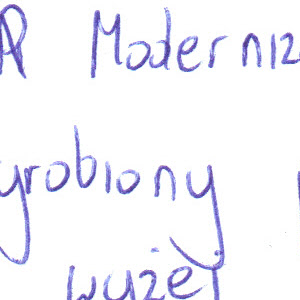 AP Moderniz
yrobiony
wyżej